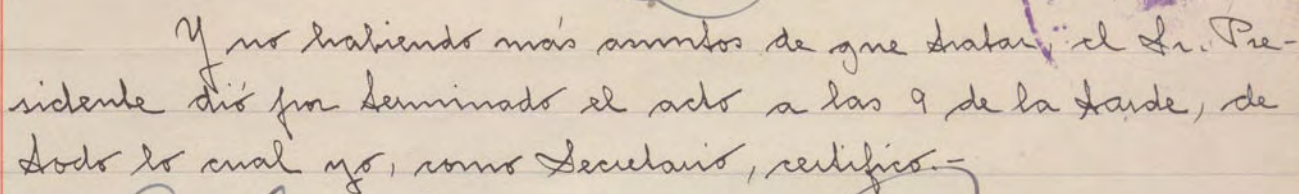 Y no habiendo más asuntos de que tratar, el Sr. Pre-
sidente dió por terminado el acto a las 9 de la tarde, de
todo lo cual yo, como Secretario, certifico.-